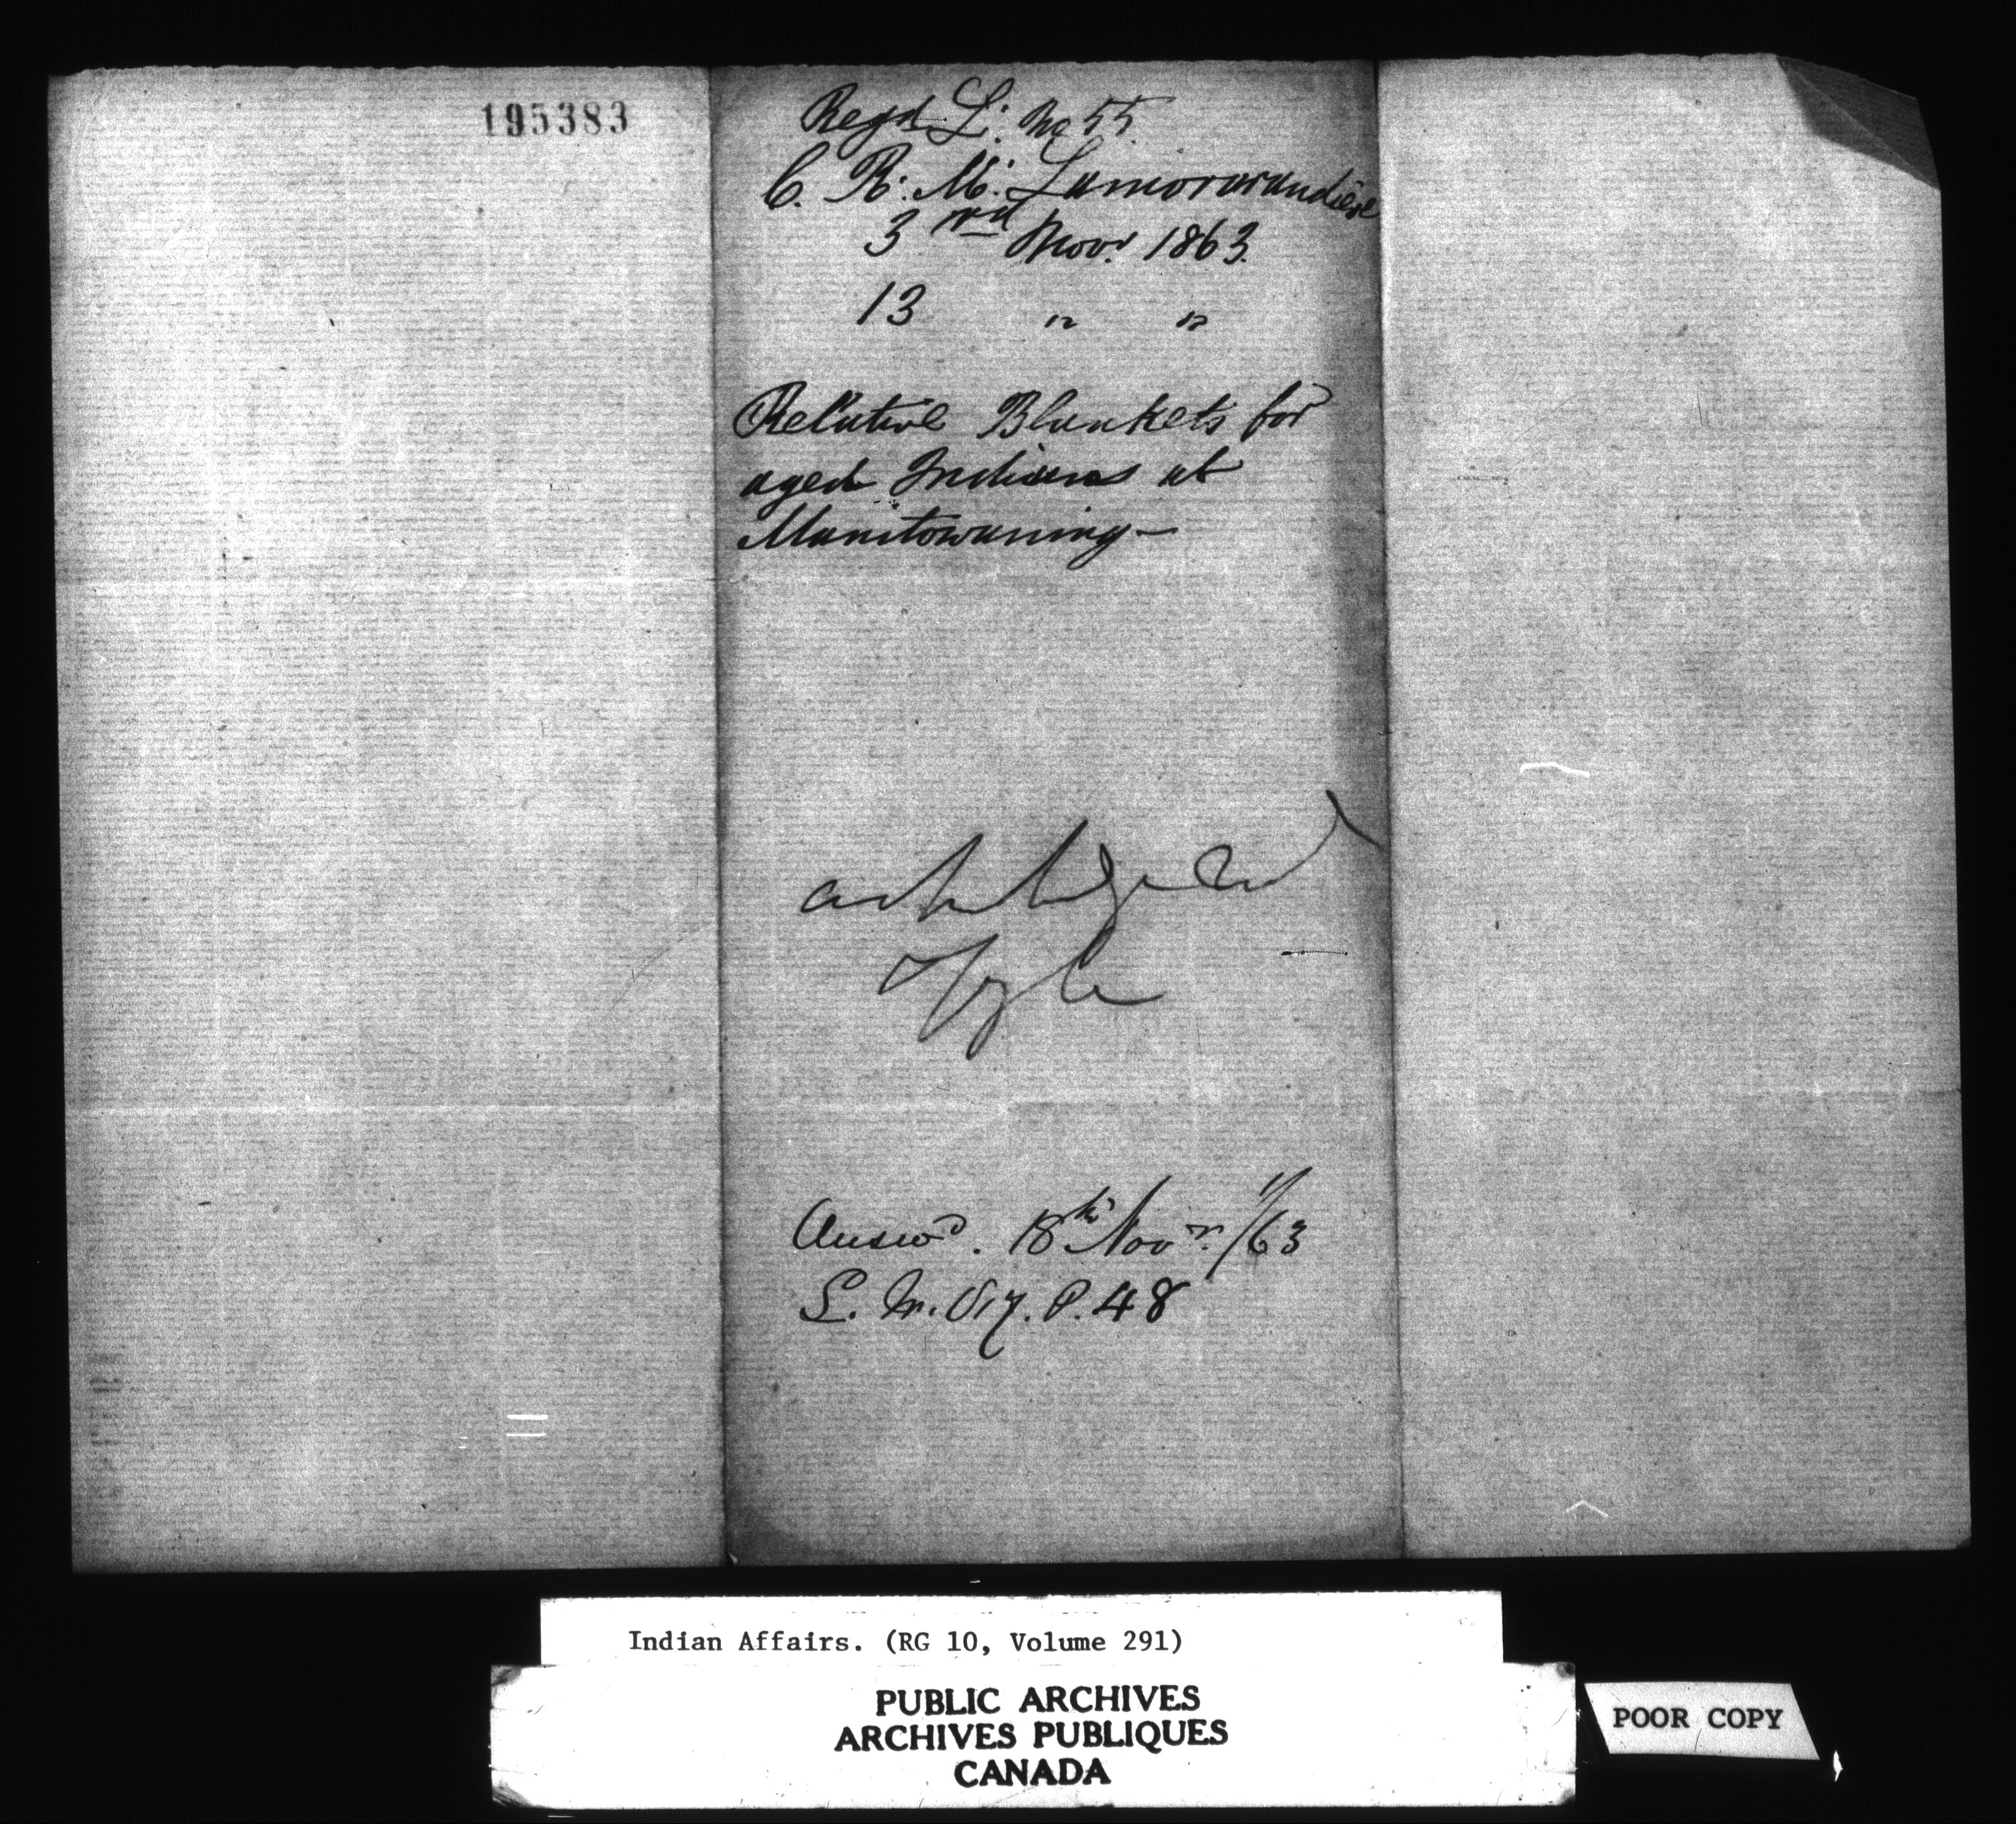 195383
Regd L. No 55
C. R. M. Lamorarandiere
3rd Novr 1863.
13 " "
Relative Blankets for
aged Indians at
Manitowaning—
Answd. 18th Novr. /63
P. 48
Indian Affairs. (RG 10, Volume 291)
PUBLIC ARCHIVES
ARCHIVES PUBLIQUES
CANADA
POOR COPY